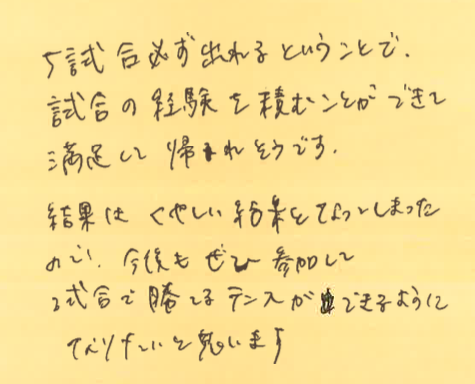 5試合必ず出れるということで、
試合の経験を積むことができて
満足して帰れそうです。
結果はくやしい結果となってしまった
ので、今後もぜひ参加して
試合で勝てるテニスができるように
なりたいと思います